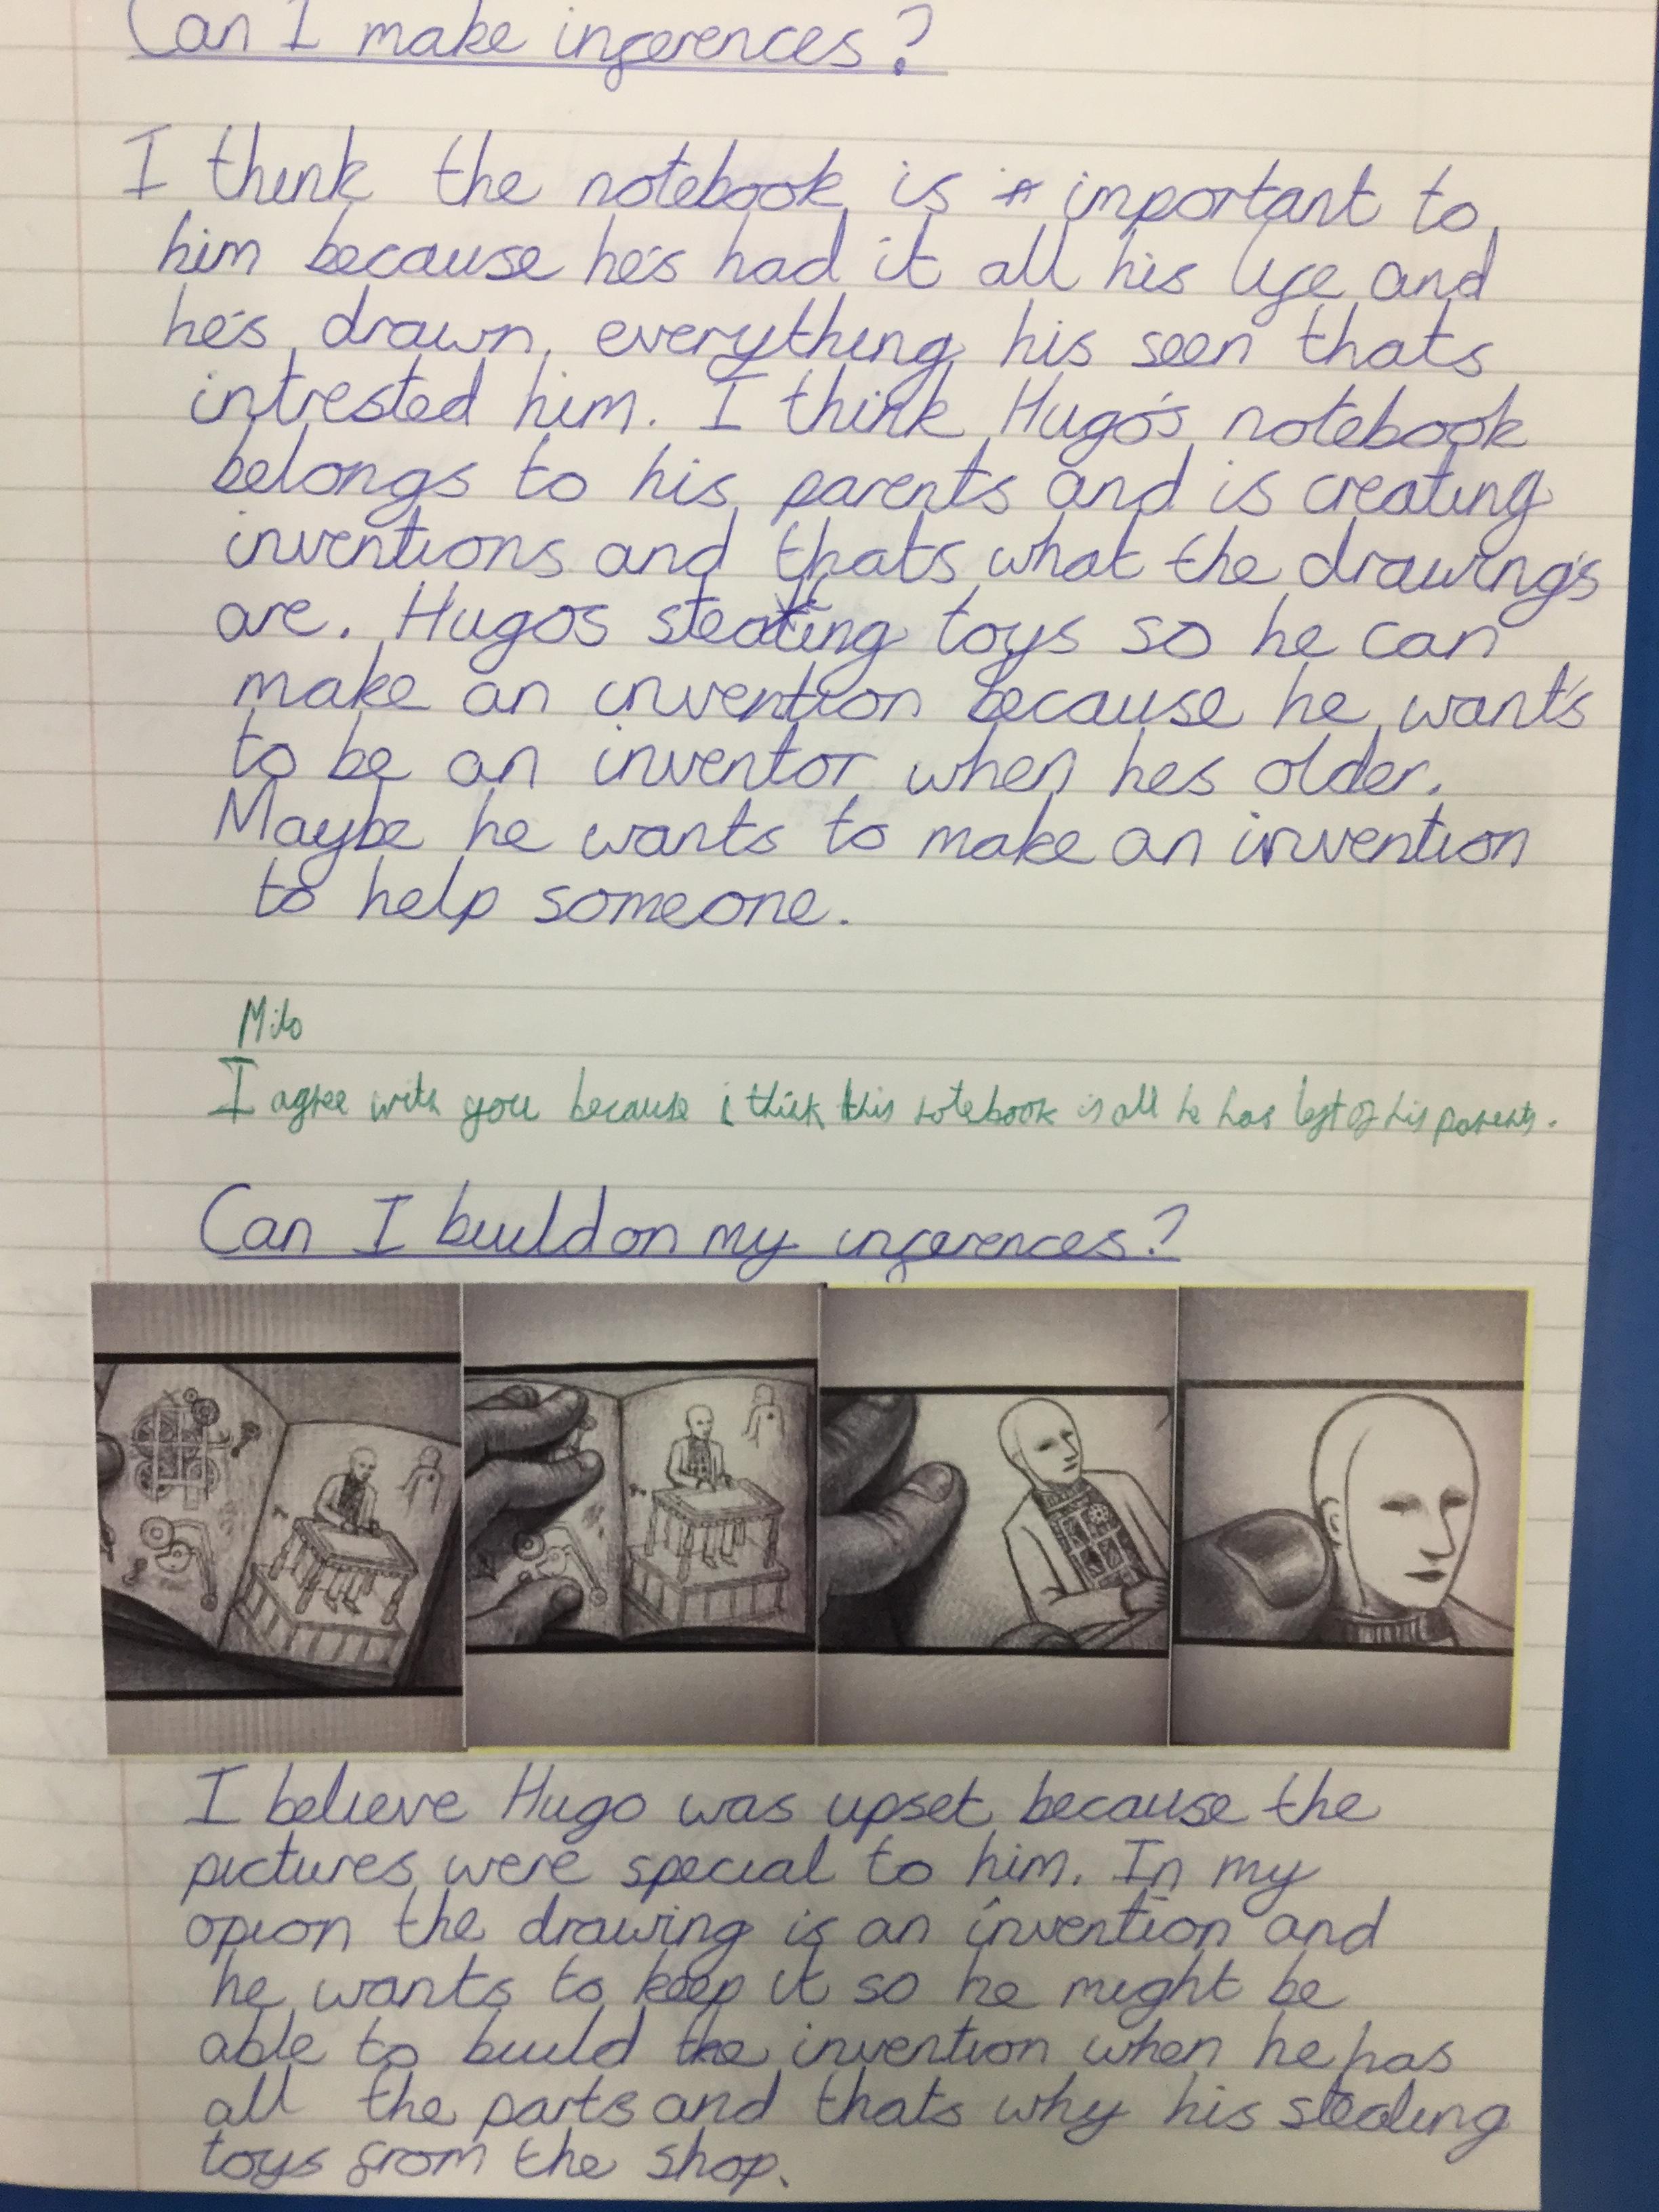 Can I make inferences?
I think the notebook is important to
him because he's had it all his life and
he's drawn everything his seen thats
intrested him. I think Hugo's notebook
belongs to his parents and is creating
inventions and thats what the drawing's
are. Hugos stealing toys so he can
make an invention because he want's
to be an inventor when hes older.
Maybe he wants to make an invention
to help someone.
Milo
I agree with you because i think this notebook is all he has left of his parents.
Can I build on my inferences?
I believe Hugo was upset because the
pictures were special to him. In my
opion the drawing is an invention and
he wants to keep it so he might be
able to build the invention when he has
all the parts and thats why his stealing
toys from the shop.